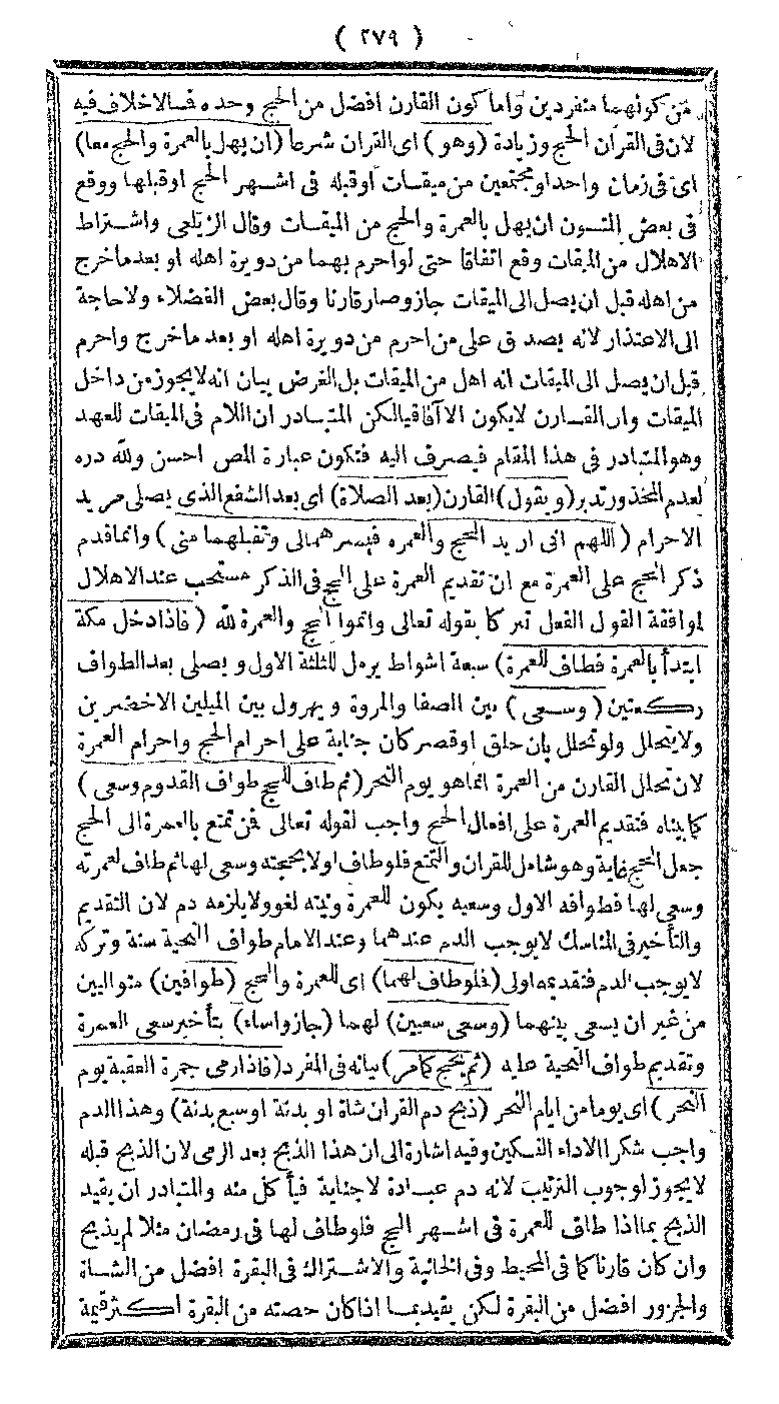 ( ٢٧٩ )
من كونهما منفردين واما كون القارن افضل من الحج وحده فمالاخلاف فيه
لان فى القرآن الحج وزيادة (وهو) اى القران شرعا (ان يهل بالعمرة والحج معا)
اى فى زمان واحد او مجتمعين من ميقات أو قبله فى اشهر الحج او قبلها ووقع
فى بعض المتون ان يهل بالعمرة والحج من الميقات وقال الزيلعى واشتراط
الاهلال من الميقات وقع اتفاقا حتى لو احرم بهما من دويرة اهله او بعد ما خرج
من اهله قبل ان يصل الى الميقات جاز وصار قارنا وقال بعض الفضلاء ولا حاجة
الى الاعتذار لانه يصدق على من احرم من دويرة اهله او بعد ما خرج واحرم
قبل ان يصل الى الميقات انه اهل من الميقات بل الغرض بيان انه لايجوز من داخل
الميقات وان القارن لايكون الا آفاقيا لكن المتبادر ان اللام فى الميقات للعهد
وهو المتبادر فى هذا المقام فيصرف اليه فتكون عبارة المص احسن ولله دره
لعدم المحذور تدبر (ويقول) القارن (بعد الصلاة) اى بعد الشفع الذى يصلى مريد
الاحرام (اللهم انى اريد الحج والعمره فيسرهمالى وتقبلهما منى) وانما قدم
ذكر الحج على العمرة مع ان تقديم العمرة على الحج فى الذكر مستحب عند الاهلال
لموافقة القول الفعل تبركا بقوله تعالى واتموا الحج والعمرة لله (فاذا دخل مكة
ابتدأ بالعمرة فطاف للعمرة) سبعة اشواط يرمل للثلثة الاول ويصلى بعد الطواف
ركعتين (وسعى) بين الصفا والمروة ويهرول بين الميلين الاخضرين
ولا يتحلل ولو تحلل بان حلق او قصر كان جناية على احرام الحج واحرام العمرة
لان تحلل القارن من العمرة انما هو يوم النحر (ثم طاف للحج طواف القدوم وسعى)
كما بيناه فتقديم العمرة على افعال الحج واجب لقوله تعالى فمن تمتع بالعمرة الى الحج
جعل الحج غاية وهو شامل للقران والتمتع فلو طاف اولا بحجته وسعى لها ثم طاف لعمرته
وسعى لها فطوافه الاول وسعيه يكون للعمرة ونيته لغو ولا يلزمه دم لان التقديم
والتأخير فى المناسك لايوجب الدم عندهما وعند الامام طواف التحية سنة وتركه
لايوجب الدم فتقديمه اولى (فلو طاف لهما) اى للعمرة والحج (طوافين) متواليين
من غير ان يسعى بينهما (وسعى سعيين) لهما (جاز واساء) بتأخير سعى العمرة
وتقديم طواف التحية عليه (ثم يحج كما مر) بيانه فى المفرد (فاذا رمى جمرة العقبة يوم
النحر) اى يوما من ايام النحر (ذبح دم القران شاة او بدنة او سبع بدنة) وهذا الدم
واجب شكرا لاداء النسكين وفيه اشارة الى ان هذا الذبح بعد الرمى لان الذبح قبله
لايجوز لوجوب الترتيب لانه دم عبادة لاجناية فيأكل منه والمتبادر ان يقيد
الذبح بما اذا طاف للعمرة فى اشهر الحج فلو طاف لها فى رمضان مثلا لم يذبح
وان كان قارنا كما فى المحيط وفى الخانية والاشتراك فى البقرة افضل من الشاة
والجزور افضل من البقرة لكن يقيد بما اذا كان حصته من البقرة اكثر قيمة